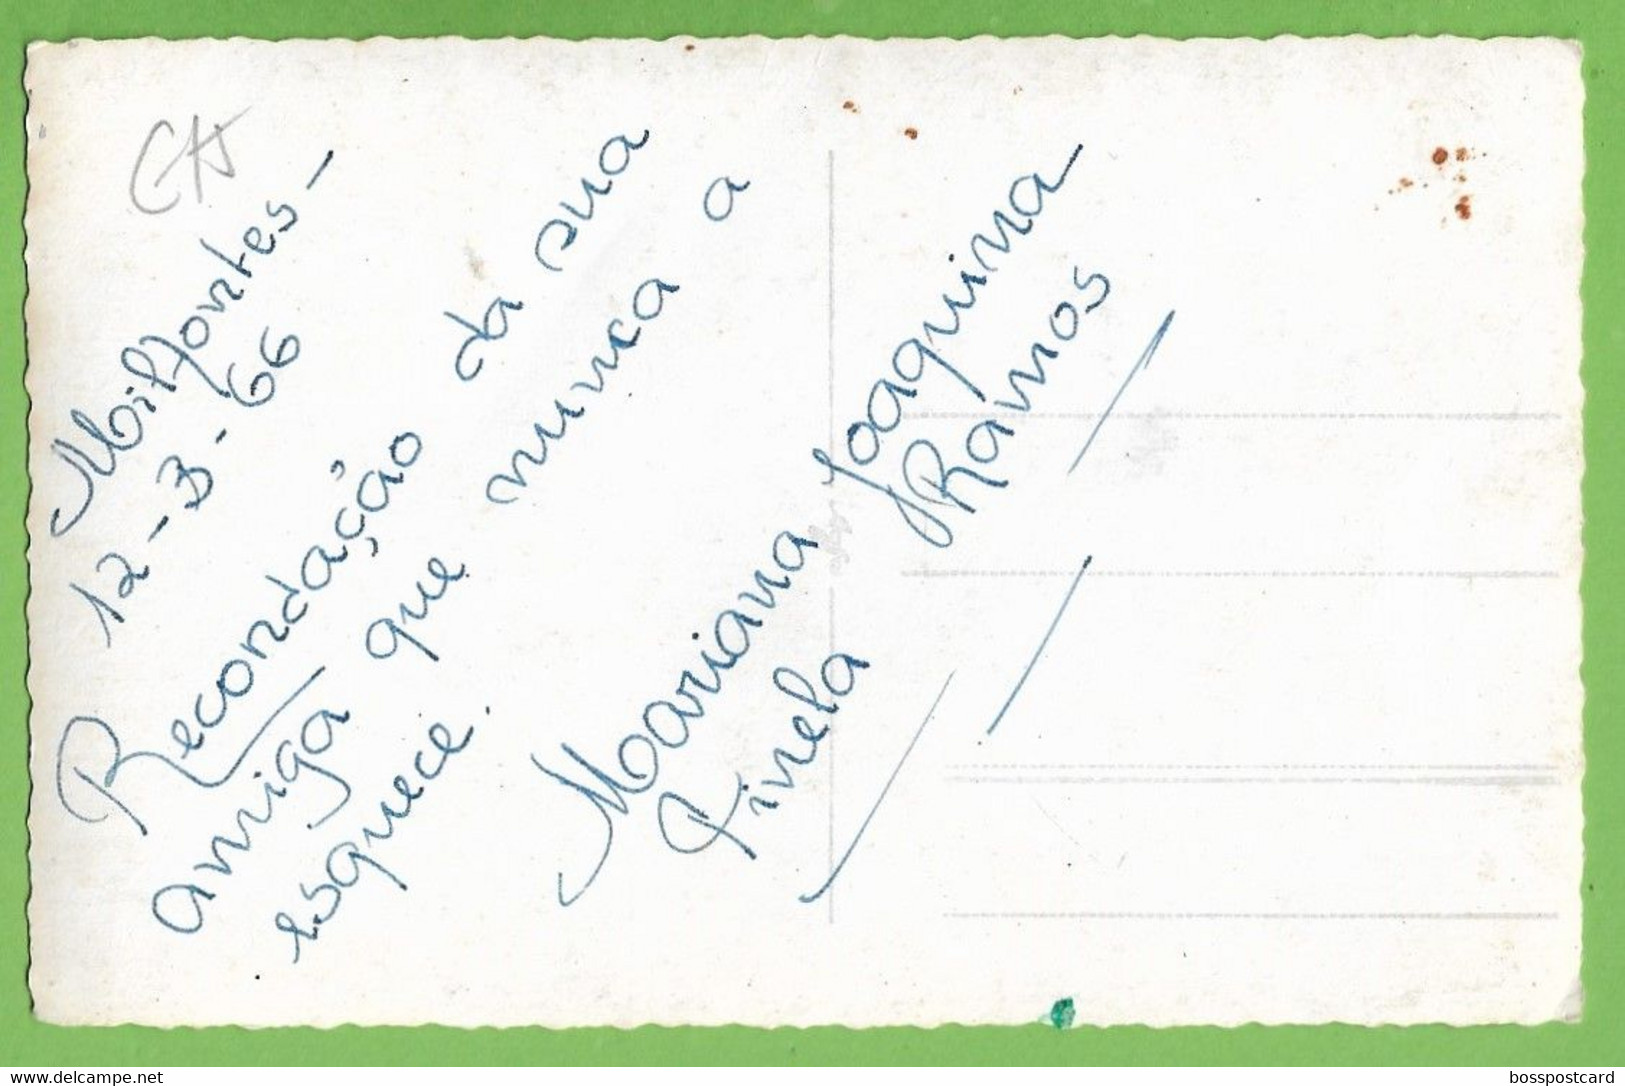 Milfontes -
12-3-66
Recordação da sua
amiga que nunca a
esquece.
Mariana Joaquina
Pinela Ramos
www.delcampe.net
bosspostcard